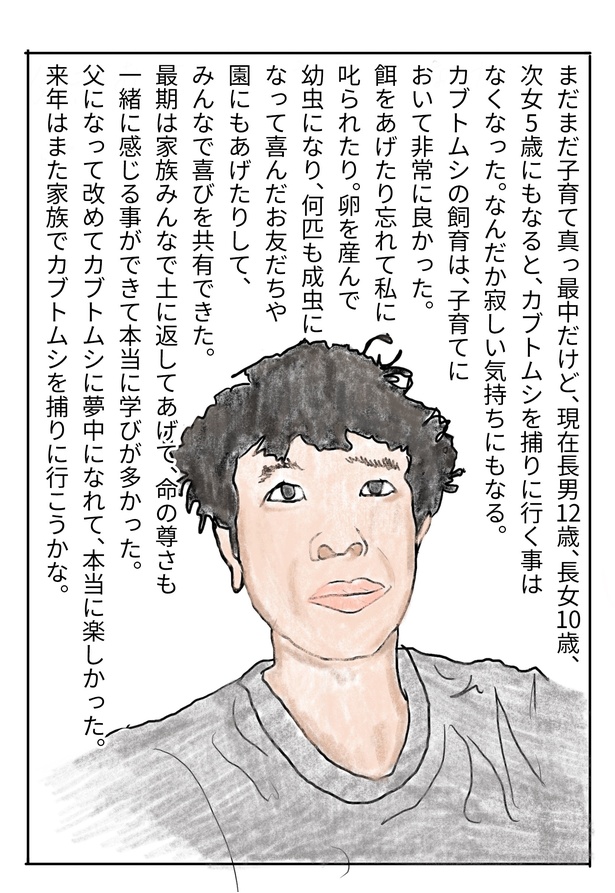 まだまだ子育て真っ最中だけど、現在長男12歳、長女10歳、
次女5歳にもなると、カブトムシを捕りに行く事は
なくなった。なんだか寂しい気持ちにもなる。
カブトムシの飼育は、子育てに
おいて非常に良かった。
餌をあげたり忘れて私に
叱られたり。卵を産んで
幼虫になり、何匹も成虫に
なって喜んだお友だちや
園にもあげたりして、
みんなで喜びを共有できた。
最期は家族みんなで土に返してあげて、命の尊さも
一緒に感じる事ができて本当に学びが多かった。
父になって改めてカブトムシに夢中になれて、本当に楽しかった。
来年はまた家族でカブトムシを捕りに行こうかな。